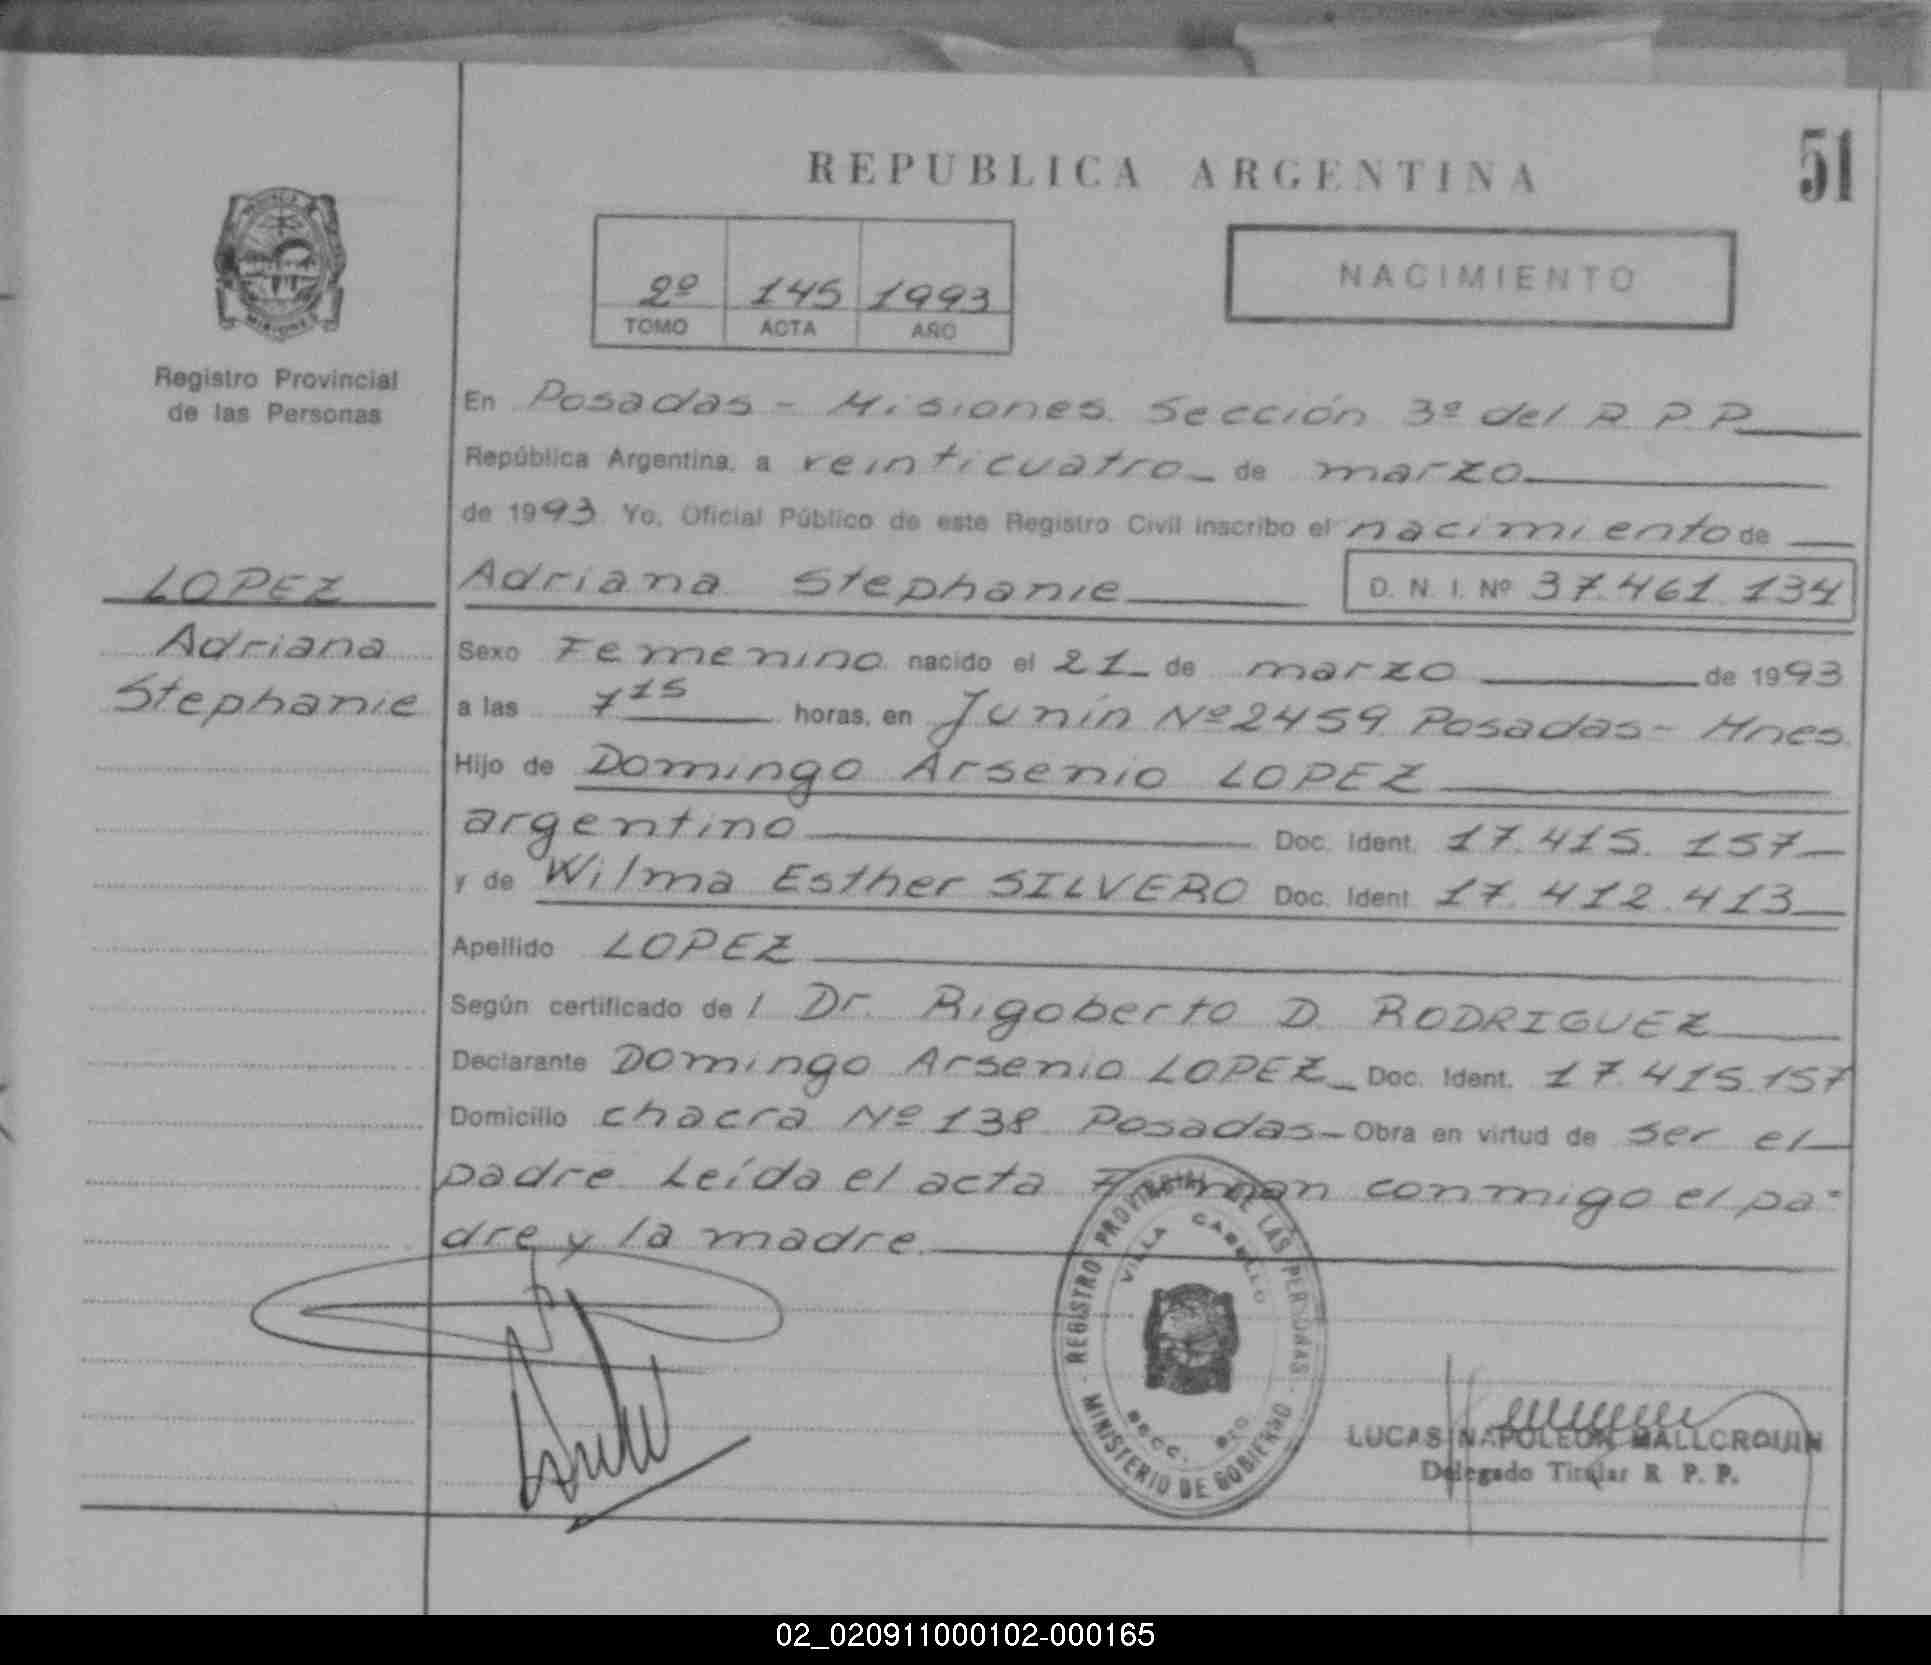 51
REPUBLICA ARGENTINA
2º 145 1993
TOMO ACTA AÑO
NACIMIENTO
MISIONES
Registro Provincial
de las Personas
En Posadas - Misiones. Sección 3º del R P.P.
República Argentina, a veinticuatro de marzo
de 1993 Yo, Oficial Público de este Registro Civil inscribo el nacimiento de
LOPEZ
Adriana
Stephanie
Adriana Stephanie D. N. I. Nº 37.461.134
Sexo Femenino nacido el 21 de marzo de 1993
a las 7 15 horas, en Junín Nº 2459 Posadas - Mnes.
Hijo de Domingo Arsenio LOPEZ
argentino Doc. Ident. 17.415.157
y de Wilma Esther SILVERO Doc. Ident. 17.412.413
Apellido LOPEZ
Según certificado de l Dr. Rigoberto D. RODRIGUEZ
Declarante Domingo Arsenio LOPEZ Doc. Ident. 17.415.157
Domicilio chacra Nº 138 Posadas - Obra en virtud de ser el
padre Leída el acta Firman conmigo el pa-
dre y la madre.
REGISTRO PROVINCIAL DE LAS PERSONAS
VILLA CABELLO
SECC.
MINISTERIO DE GOBIERNO
LUCAS NAPOLEON MALLCROUIN
Delegado Titular R. P. P.
02_020911000102-000165